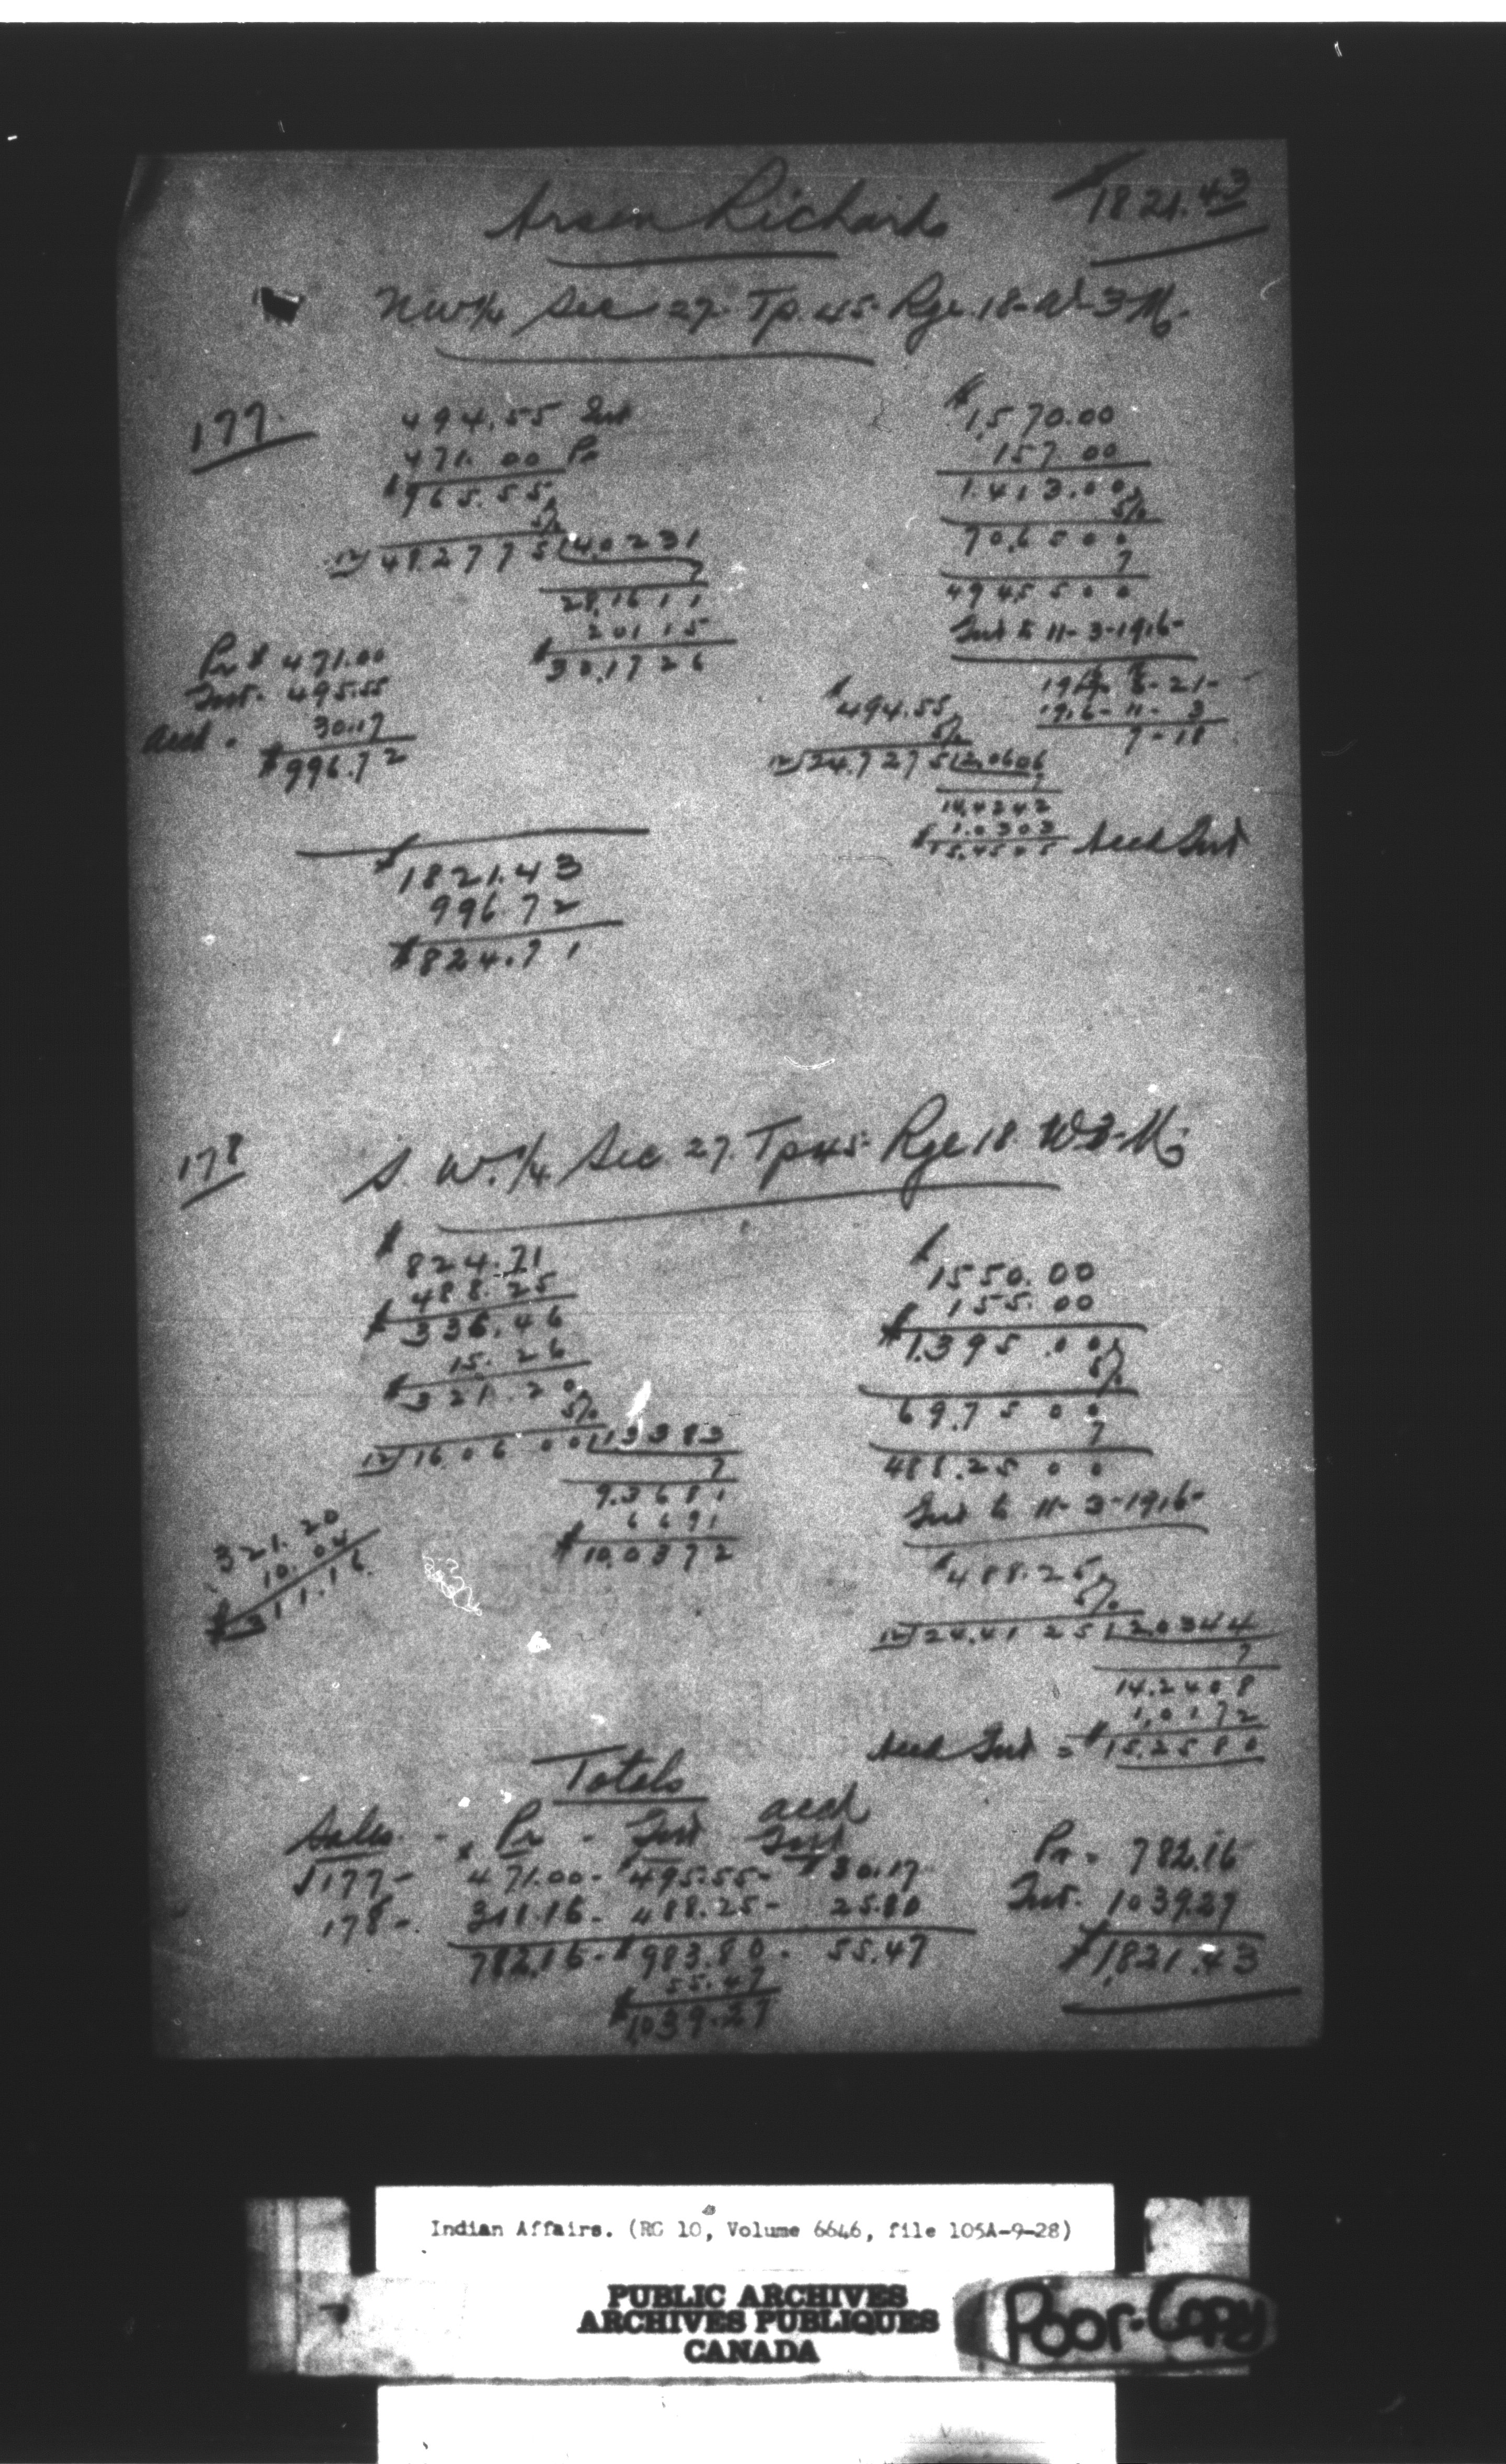 Arsen Richards
$1821.43
N.W.1/4 Sec 27. Tp. 45. Rge. 18- W-3 M.
177.
494.55 Int
471.00 Pr
$965.55
5%
12) 48.2775 (4.0231
7
28.1611
20115
$30.1726
$1,570.00
157.00
1.413.00
5%
70.6500
7
494.5500
Int to 11-3-1916-
6-21-
1916-11-3
7-18
Pr $471.00
Int. 495.55
Accd. 30.17
$996.72
$494.55
5%
12) 24.7275 (2.0606
7
14.4242
1.0303
$15.4545 Accd Int
$1821.43
996.72
$824.71
178
S. W. 1/4 Sec. 27. Tp 45- Rge 18. W3-M.
$824.71
488.25
$336.46
15.26
$321.20
5%
12) 16.0600 (1.3383
7
9.3681
6691
$10.0372
321.20
10.04
$311.16
$1550.00
155.00
$1.395.00
5%
69.7500
7
488.2500
Int to 11-3-1916-
$488.25
5%
12) 24.4125 (2.0344
7
14.2408
1.0172
Accd Int = $15.2580
Totals
Sales - Pr - Int accd Int
177- $471.00- $495.55- $30.17
178- 311.16- 488.25- 25.30
782.16- $983.80- 55.47
55.47
$1,039.27
Pr- 782.16
Int. 1039.27
$1,821.43
Indian Affairs. (RG 10, Volume 6646, file 105A-9-28)
PUBLIC ARCHIVES
ARCHIVES PUBLIQUES
CANADA
Poor-Copy